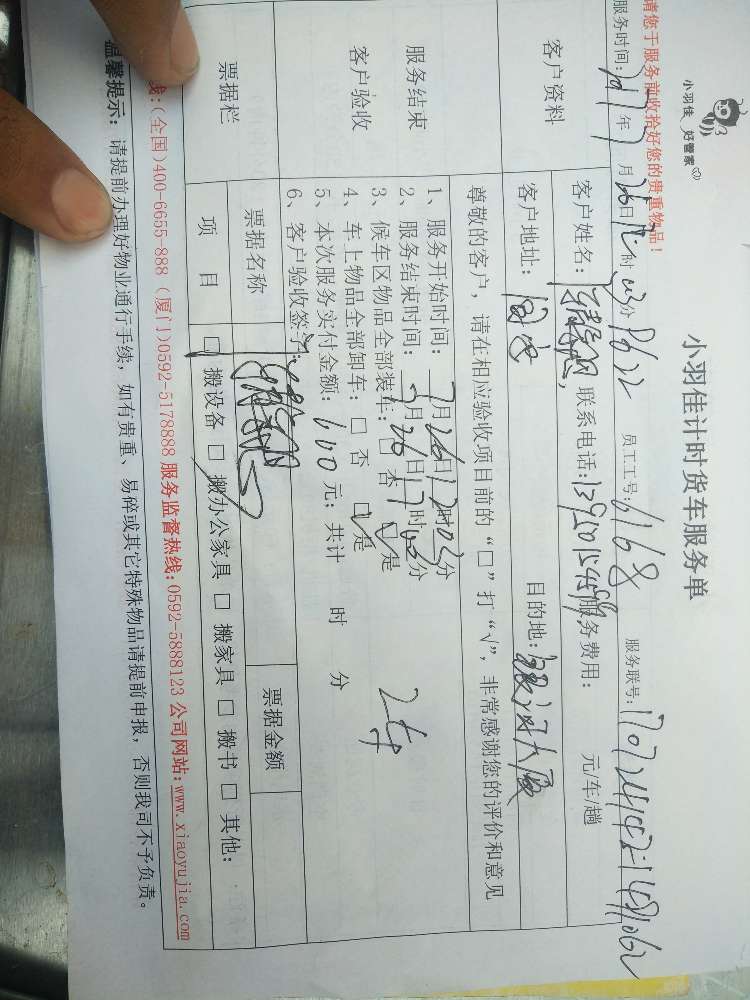 小羽佳 好管家
小羽佳计时货车服务单
请您于服务前收拾好您的贵重物品！
服务时间： 年 7 月 26 日 12 时 03 分 员工工号： 6168 服务联号：
客户资料
客户姓名： 联系电话： 服务费用： 元/车/趟
客户地址： 目的地： 大厦
尊敬的客户，请在相应验收项目前的“□”打“√”，非常感谢您的评价和意见
服务结束
客户验收
1、服务开始时间：7月26日12时03分
2、服务结束时间：7月26日17时03分
3、候车区物品全部装车：□ 否 □ 是
4、车上物品全部卸车：□ 否 □ 是
5、本次服务实付金额：600 元；共计 时 分
2车
6、客户验收签字：
票据栏 票据名称 票据金额
项 目 □ 搬设备 □ 搬办公家具 □ 搬家具 □ 搬书 □ 其他：
线:(全国)400-6655-888 (厦门)0592-5178888 服务监督热线:0592-5888123 公司网站:www.xiaoyujia.com
温馨提示：请提前办理好物业通行手续，如有贵重、易碎或其它特殊物品请提前申报，否则我司不予负责。